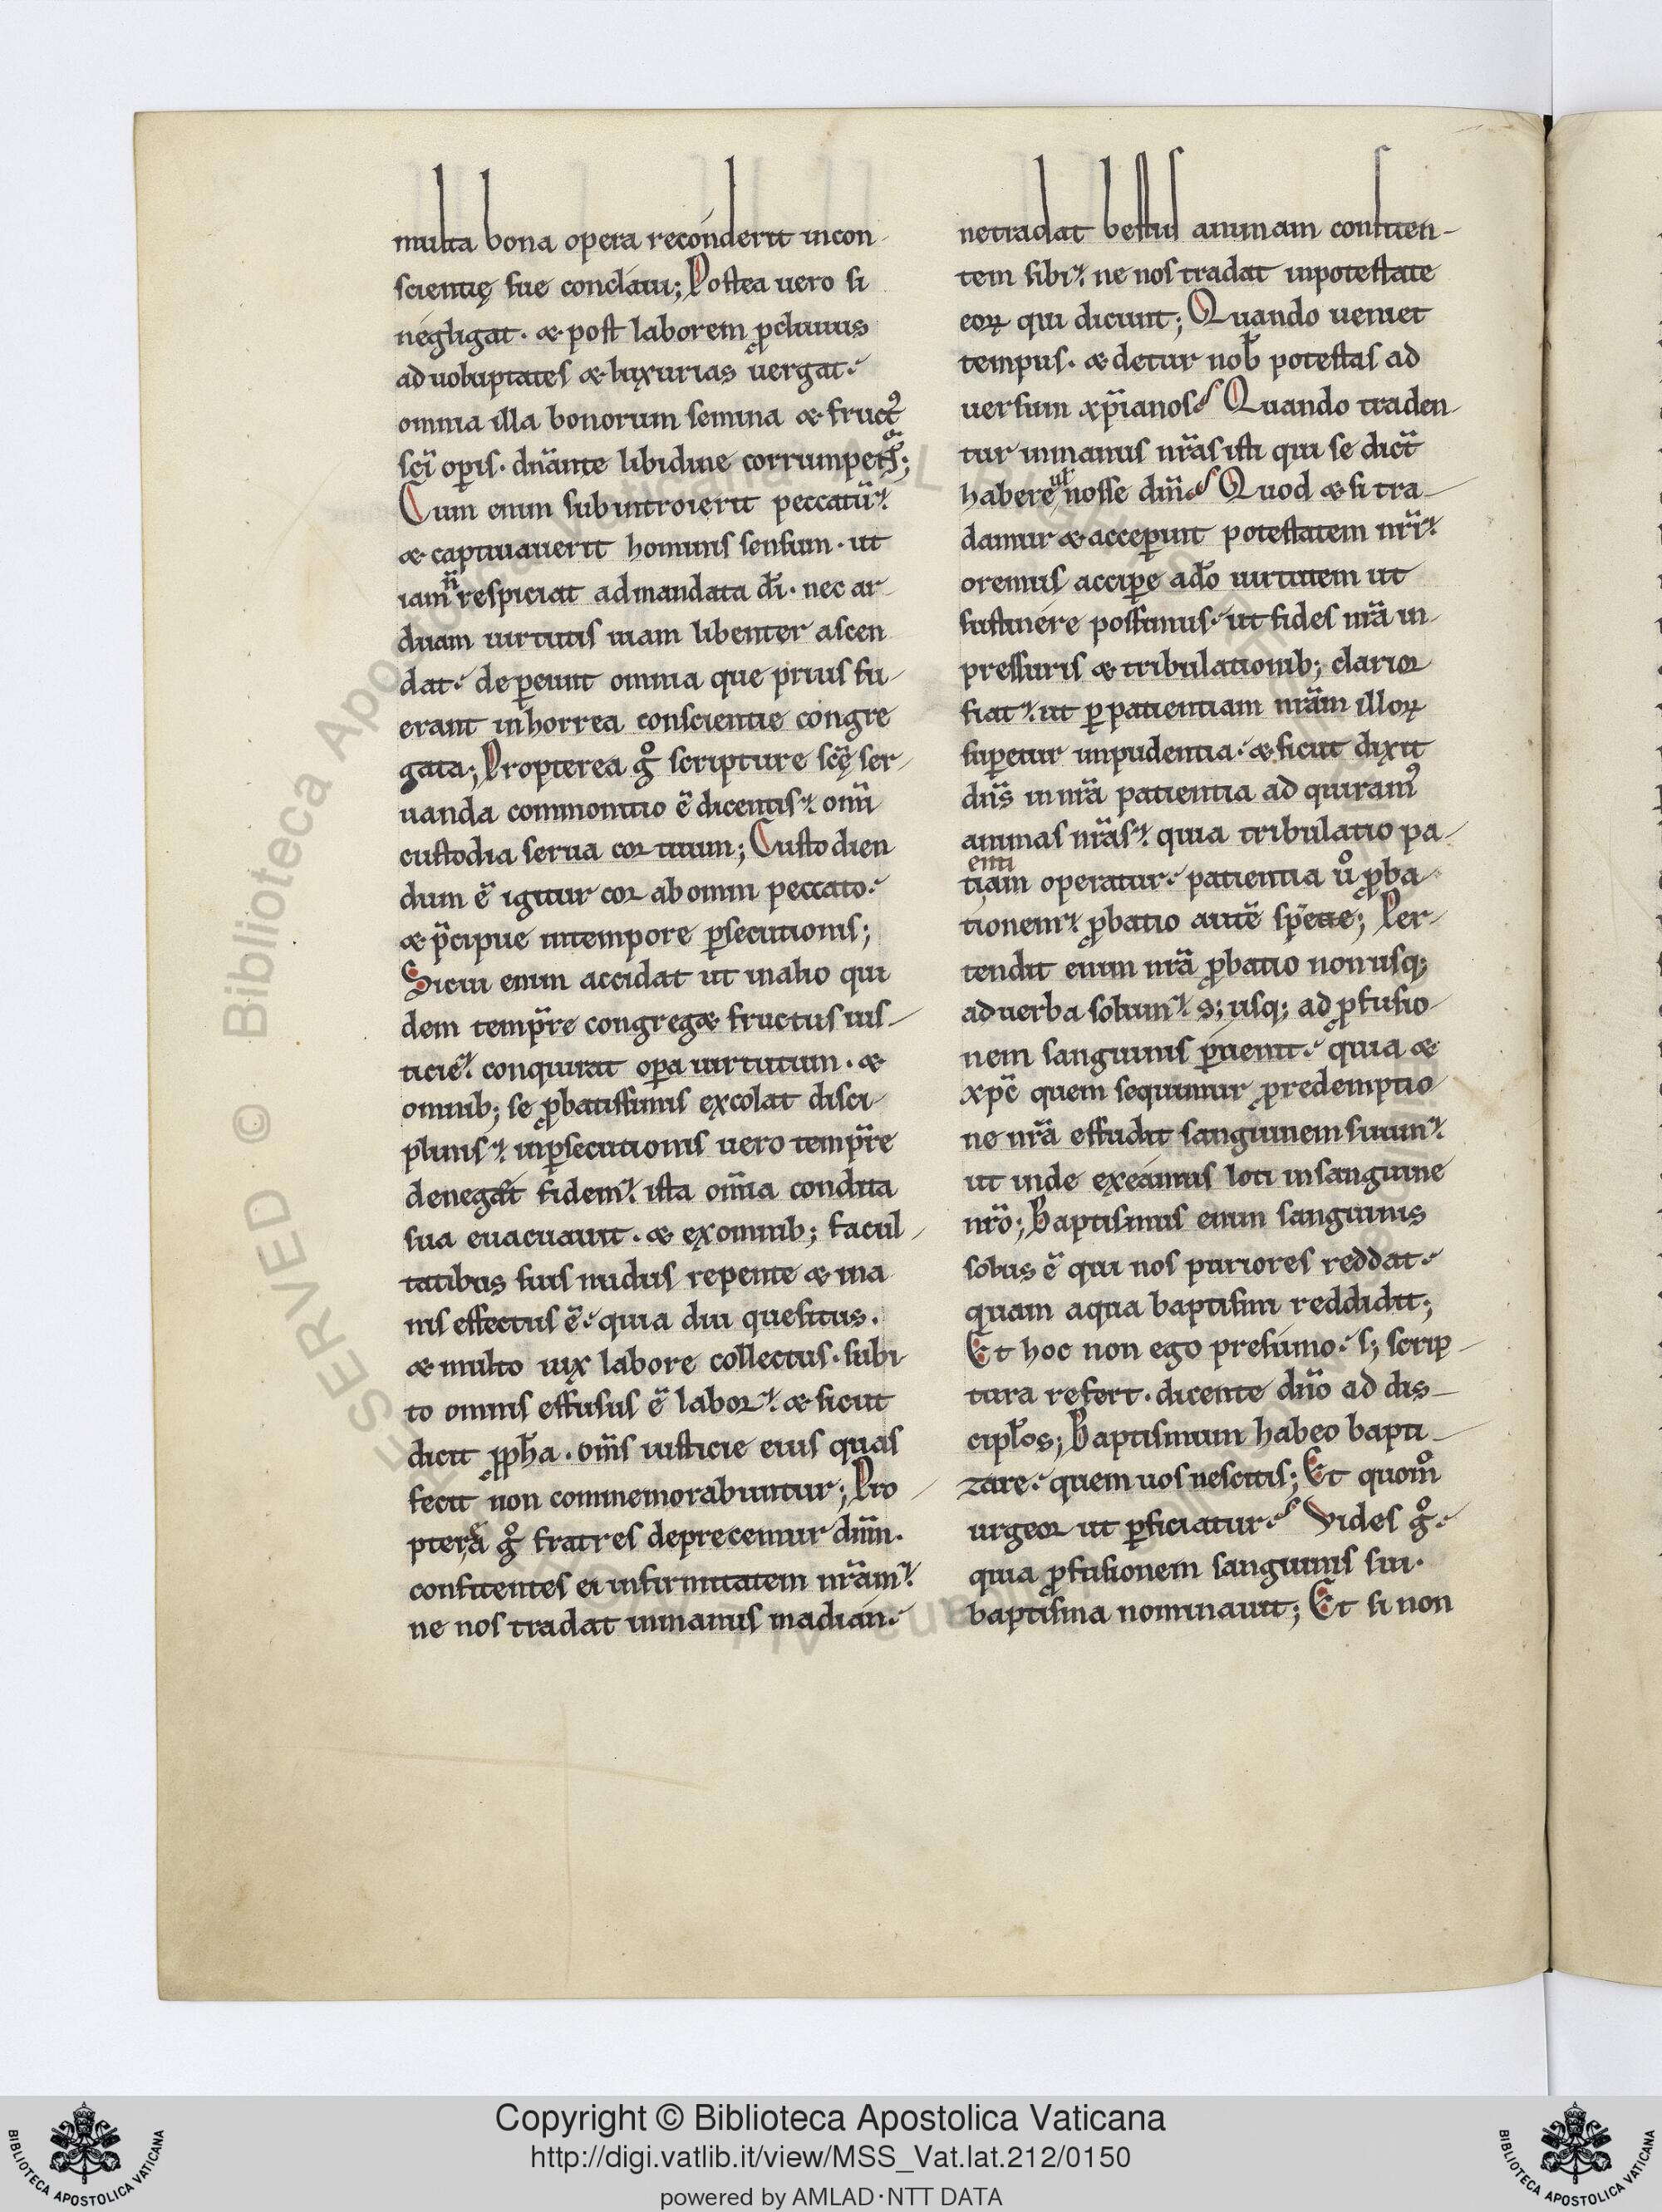 multa bona opera reconderit incon-
scientię sue conclaui; Postea uero si
negligat. & post laborem ꝓcliuus
ad uoluptates & luxurias uergat.
omnia illa bonorum semina & fruct᾽
sc̄i oꝑis. dn̄ante libidine corrumpet̄;
Cum enim subintroierit peccatū.
& captiuauerit hominis sensum. ut
iam n̄ respiciat ad mandata dī. nec ar-
duam uirtutis uiam libenter ascen
dat. deꝑeunt omnia que prius fu-
erant inhorrea conscientie congre
gata; Propterea gͦ scripture scę̄ ser-
uanda commonitio ē dicentis. om̄i
custodia serua cor tuum; Custodien
dum ē igitur cor ab omni peccato.
& p̄cipue intempore ꝑsecutionis;
Sicui enim accidat ut inalio qui
dem temp̄re congreg& fructus ius-
ticie. conquirat oꝑa uirtutum. &
omnib; se ꝓbatissimis excolat disci-
plinis. inꝑsecutionis uero temp̄re
deneget fidem. ista om̄ia condita
sua euacuauit. & exomnib; facul-
tatibus suis nudus repente & ina
nis effectus ē. quia diu quesitus.
& multo uix labore collectus. subi
to omnis effusus ē labor. & sicut
dicit ꝓph̄a. om̄s iusticie eius quas
fecit non commemorabuntur; Pro-
pterea gͦ fratres deprecemur dn̄m.
confitentes ei infirmitatem nr̄am.
ne nos tradat inmanus madian.
netradat bestiis animam confiten-
tem sibi. ne nos tradat inpotestate
eoꝝ qui dicunt; Quando ueniet
tempus. & detur nob̄ potestas ad
uersum xp̄ianos. Quando traden-
tur inmanus nr̄as isti qui se dic̄t
habere ul̄ nosse dm̄. Quod & si tra-
damur & acceꝑint potestatem nr̄i.
oremus acciꝑe ad̄o uirtutem ut
sustinere possimus. ut fides nr̄a in-
pressuris & tribulationib; clarior
fiat. ut ꝑ patientiam nr̄am illoꝝ
suꝑetur inpudentia. & sicut dixit
dn̄s in nr̄a patientia ad quiram᾽
animas nr̄as. quia tribulatio pa-
enti
tiam operatur. patientia uͦ ꝓba-
tionem. ꝓbatio autē sp̄em; Per-
tendit enim nr̄a ꝓbatio non usq;
ad uerba solum. s; usq; ad ꝓfusio-
nem sanguinis ꝑuenit. quia &
xp̄c quem sequimur ꝓredemptio
ne nr̄a effudit sanguinem suum.
ut inde exeamus loti insanguine
nr̄o; Baptismus enim sanguinis
solus ē qui nos puriores reddat.
quam aqua baptismi reddidit;
Et hoc non ego presumo. s; scrip-
tura refert. dicente dn̄o ad dis-
cipl̄os; Baptismum habeo bapti-
zare. quem uos nescitis; Et quom̊
urgeor ut ꝑficiatur. Vides gͦ.
quia ꝓfusionem sanguinis sui.
baptisma nominauit; Et si non
Copyright © Biblioteca Apostolica Vaticana
http://digi.vatlib.it/view/MSS_Vat.lat.212/0150
powered by AMLAD·NTT DATA
BIBLIOTECA APOSTOLICA VATICANA
BIBLIOTECA APOSTOLICA VATICANA